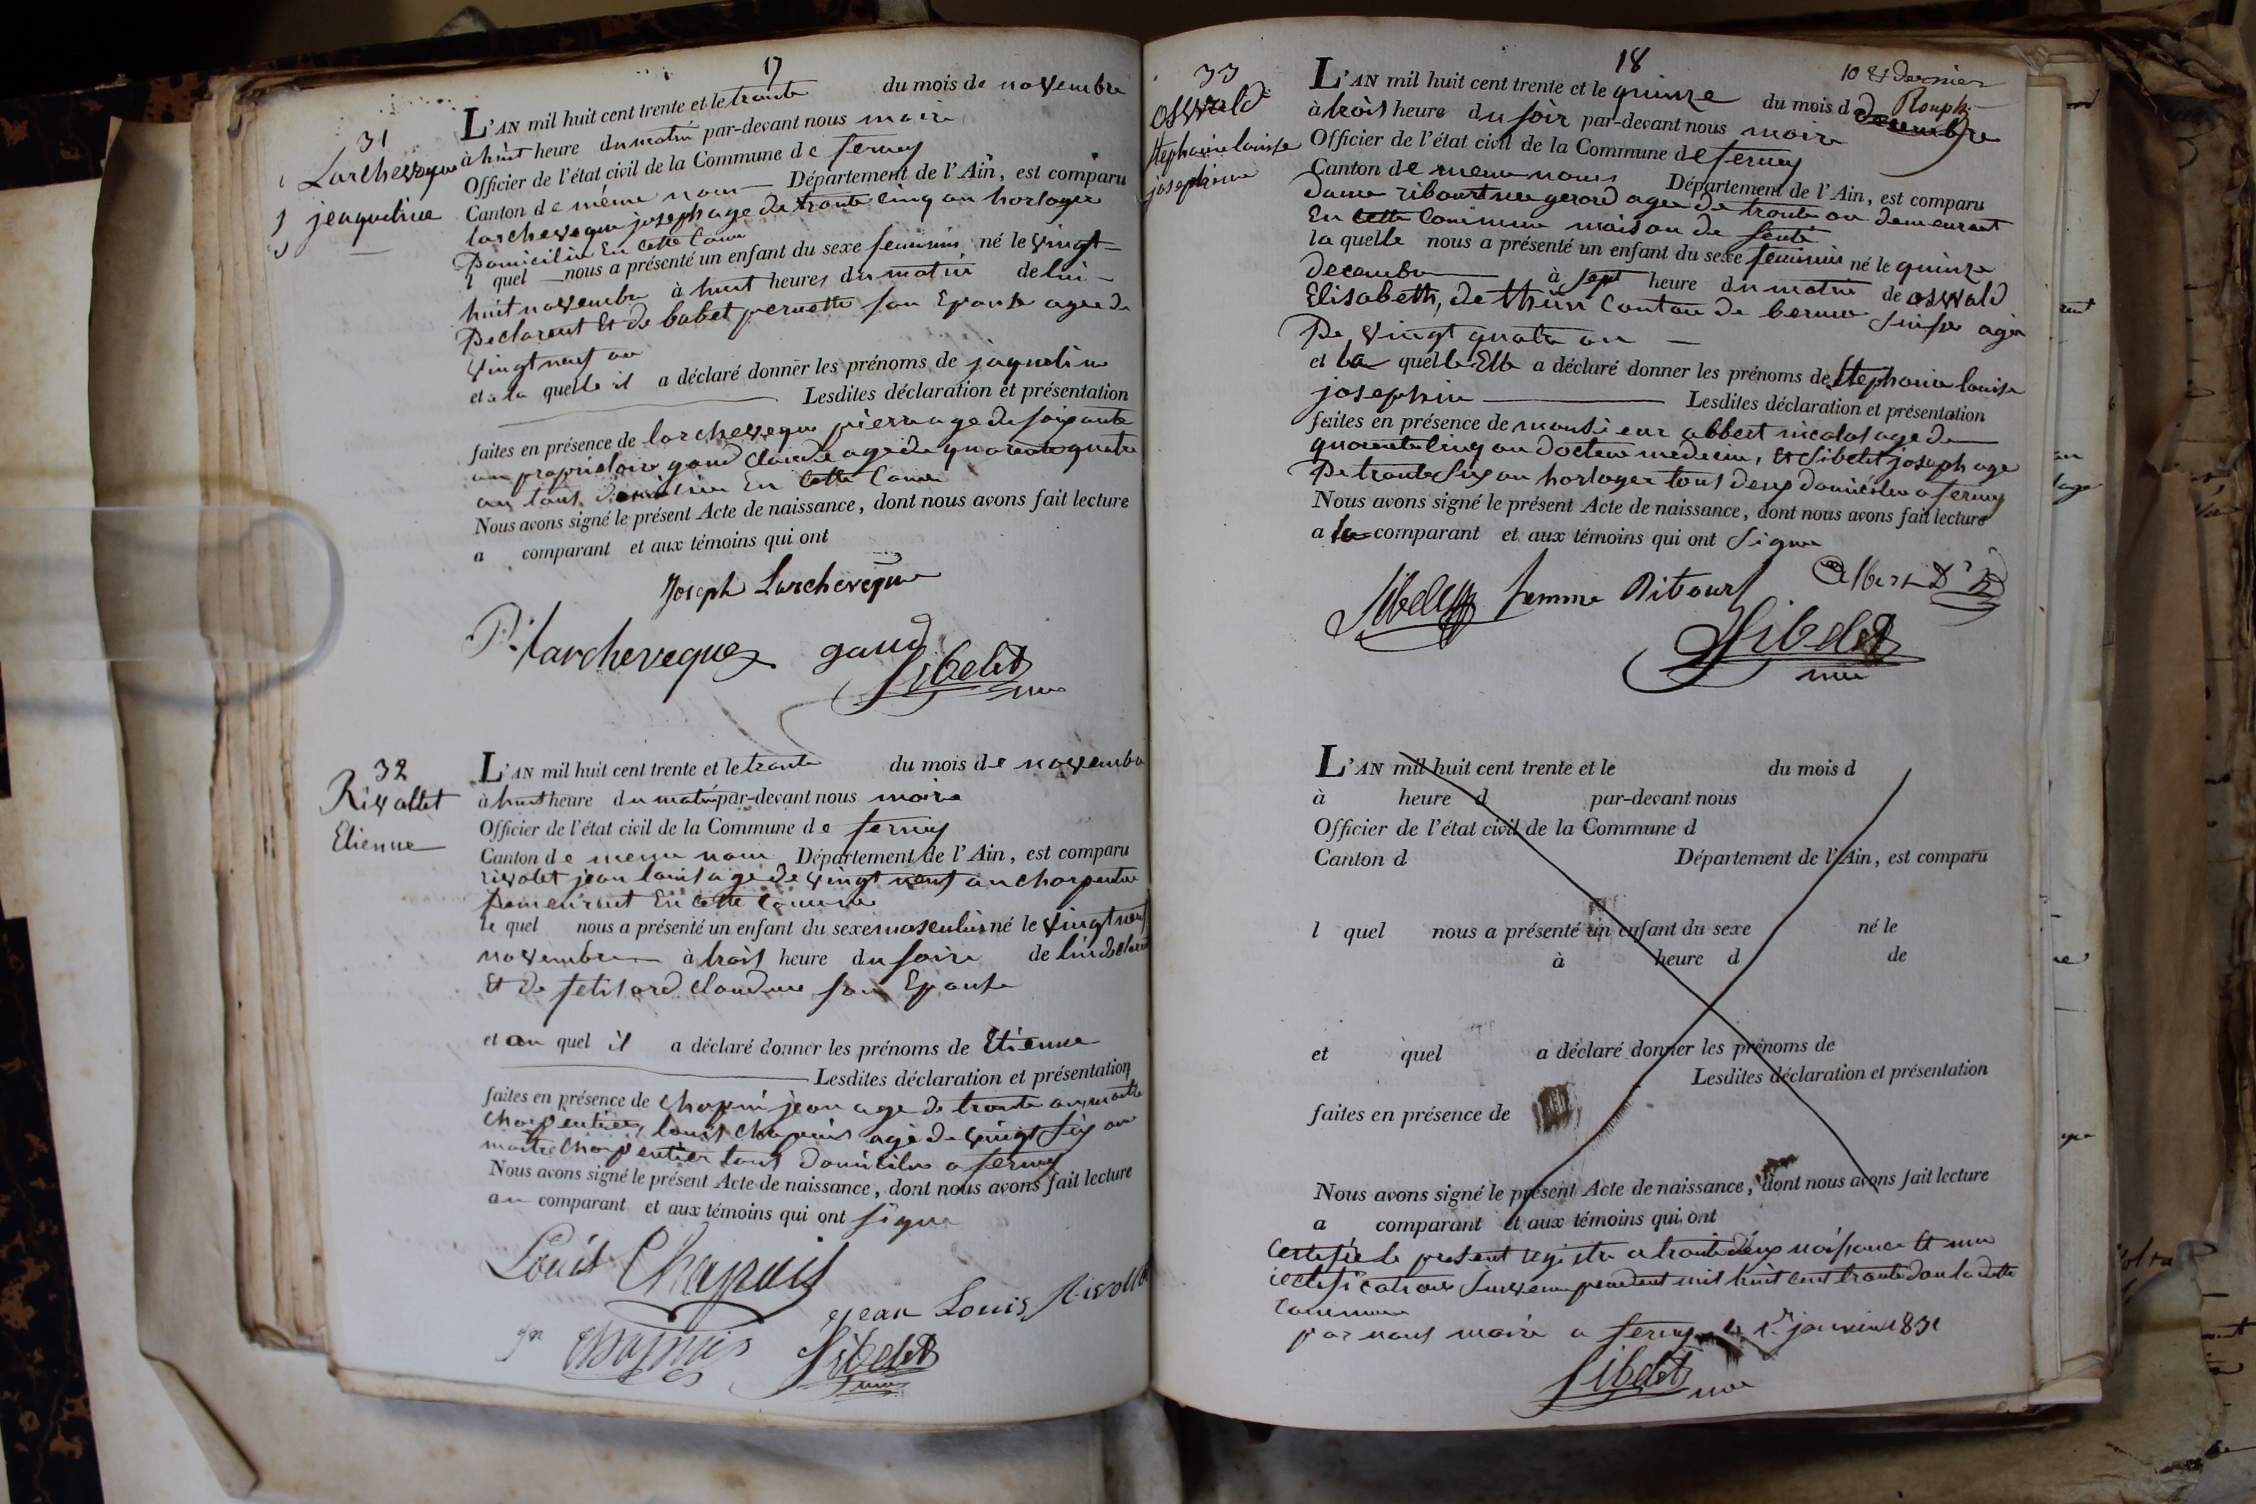 17
31
Larcheveque
jeaqueline
L'AN mil huit cent trente et le trente du mois de novembre
à huit heure du matin par-devant nous maire
Officier de l'état civil de la Commune de ferney
Canton de même nom Département de l'Ain, est comparu
larcheveque joseph age de trente cinq an horloger
Domicilié En cette Comne
l quel nous a présenté un enfant du sexe feminin né le vingt
huit novembre à huit heures du matin de lui
Declarant Et de babet pernette son Epouse agee de
vingt neuf an
et a la quelle il a déclaré donner les prénoms de jaqueline
Lesdites déclaration et présentation
faites en présence de larcheveque pierre age de soixante
an propriétaire gaud Claude age de quarante quatre
an tous domicilie En cette Comne
Nous avons signé le présent Acte de naissance, dont nous avons fait lecture
a comparant et aux témoins qui ont
Joseph Larcheveque
P. Larcheveque gaud
Sibelet
mre
32
Rivollet
Etienne
L'AN mil huit cent trente et le trente du mois de novembre
à huit heure du matin par-devant nous maire
Officier de l'état civil de la Commune de ferney
Canton de meme nom Département de l'Ain, est comparu
rivolet jean louis age de vingt neuf an charpentier
Demeurant En cette Commune
le quel nous a présenté un enfant du sexe masculin né le vingt neuf
novembre à trois heure du soire de lui declarant
Et de petitard claudine son Epouse
et au quel il a déclaré donner les prénoms de Etienne
Lesdites déclaration et présentation
faites en présence de chapuis jean age de trente an maitre
charpentier, louis chapuis agé de vingt six an
maitre charpentier tous domicilie a ferney
Nous avons signé le présent Acte de naissance, dont nous avons fait lecture
au comparant et aux témoins qui ont signe
Louis Chapuis
jean Louis Rivollet
jn chapuis Sibelet
mre
18
10 et dernier
Rouph
33
Oswald
stephanie louise
josephine
L'AN mil huit cent trente et le quinze du mois d decembre
à trois heure du soir par-devant nous maire
Officier de l'état civil de la Commune de ferney
Canton de meme nom Département de l'Ain, est comparu
Dame ribourt nee gerord agee de trente an demeurant
En cette Commune maison de santé
la quelle nous a présenté un enfant du sexe feminin né le quinze
decembre à sept heure du matin de oswald
Elisabeth, de thun Canton de berne suise agée
De vingt quatre an
et la quelle Elle a déclaré donner les prénoms de Stephanie louise
josephine Lesdites déclaration et présentation
faites en présence de monsieur albert nicolas age de
quarente cinq an docteur medecin, Et sibelet joseph age
De trente six an horloger tous deux domicilie a ferney
Nous avons signé le présent Acte de naissance, dont nous avons fait lecture
a la comparant et aux témoins qui ont signe
Sibelet femme Ribourt Albert Dr
Sibelet
mre
L'AN mil huit cent trente et le du mois d
à heure d par-devant nous
Officier de l'état civil de la Commune d
Canton d Département de l'Ain, est comparu
l quel nous a présenté un enfant du sexe né le
à heure d de
et quel a déclaré donner les prénoms de
Lesdites déclaration et présentation
faites en présence de
Nous avons signé le présent Acte de naissance, dont nous avons fait lecture
a comparant et aux témoins qui ont
Certifie le present registre a trente deux naissance Et une
rectification survenu pendent mil huit cent trente dans la dette
Commune
par nous maire a ferney le 1er janvier 1831
Sibelet mre